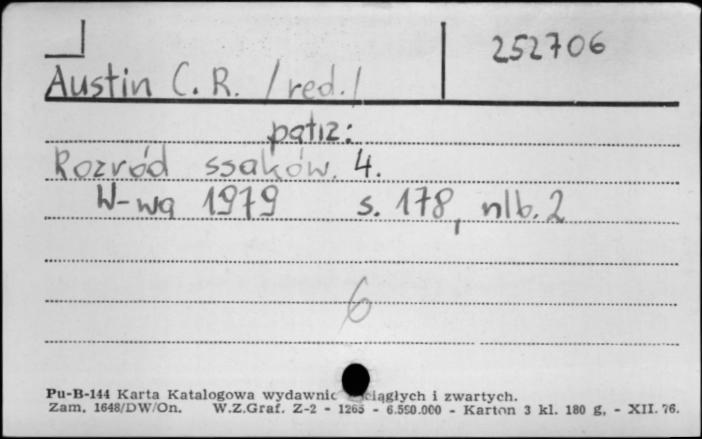 252706
Austin C. R. /red./
patrz:
Rozród ssaków. 4.
W-wa 1979 s. 178, nlb. 2
6
Pu-B-144 Karta Katalogowa wydawnic ciągłych i zwartych.
Zam. 1648/DW/On. W.Z.Graf. Z-2 - 1265 - 6.590.000 - Karton 3 kl. 180 g, - XII. 76.